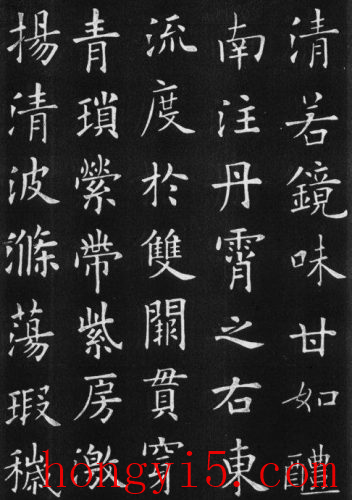 清若鏡味甘如醴
南注丹霄之右東
流度於雙闕貫穿
青瑣縈帶紫房激
揚清波滌蕩瑕穢
hongyi5.com